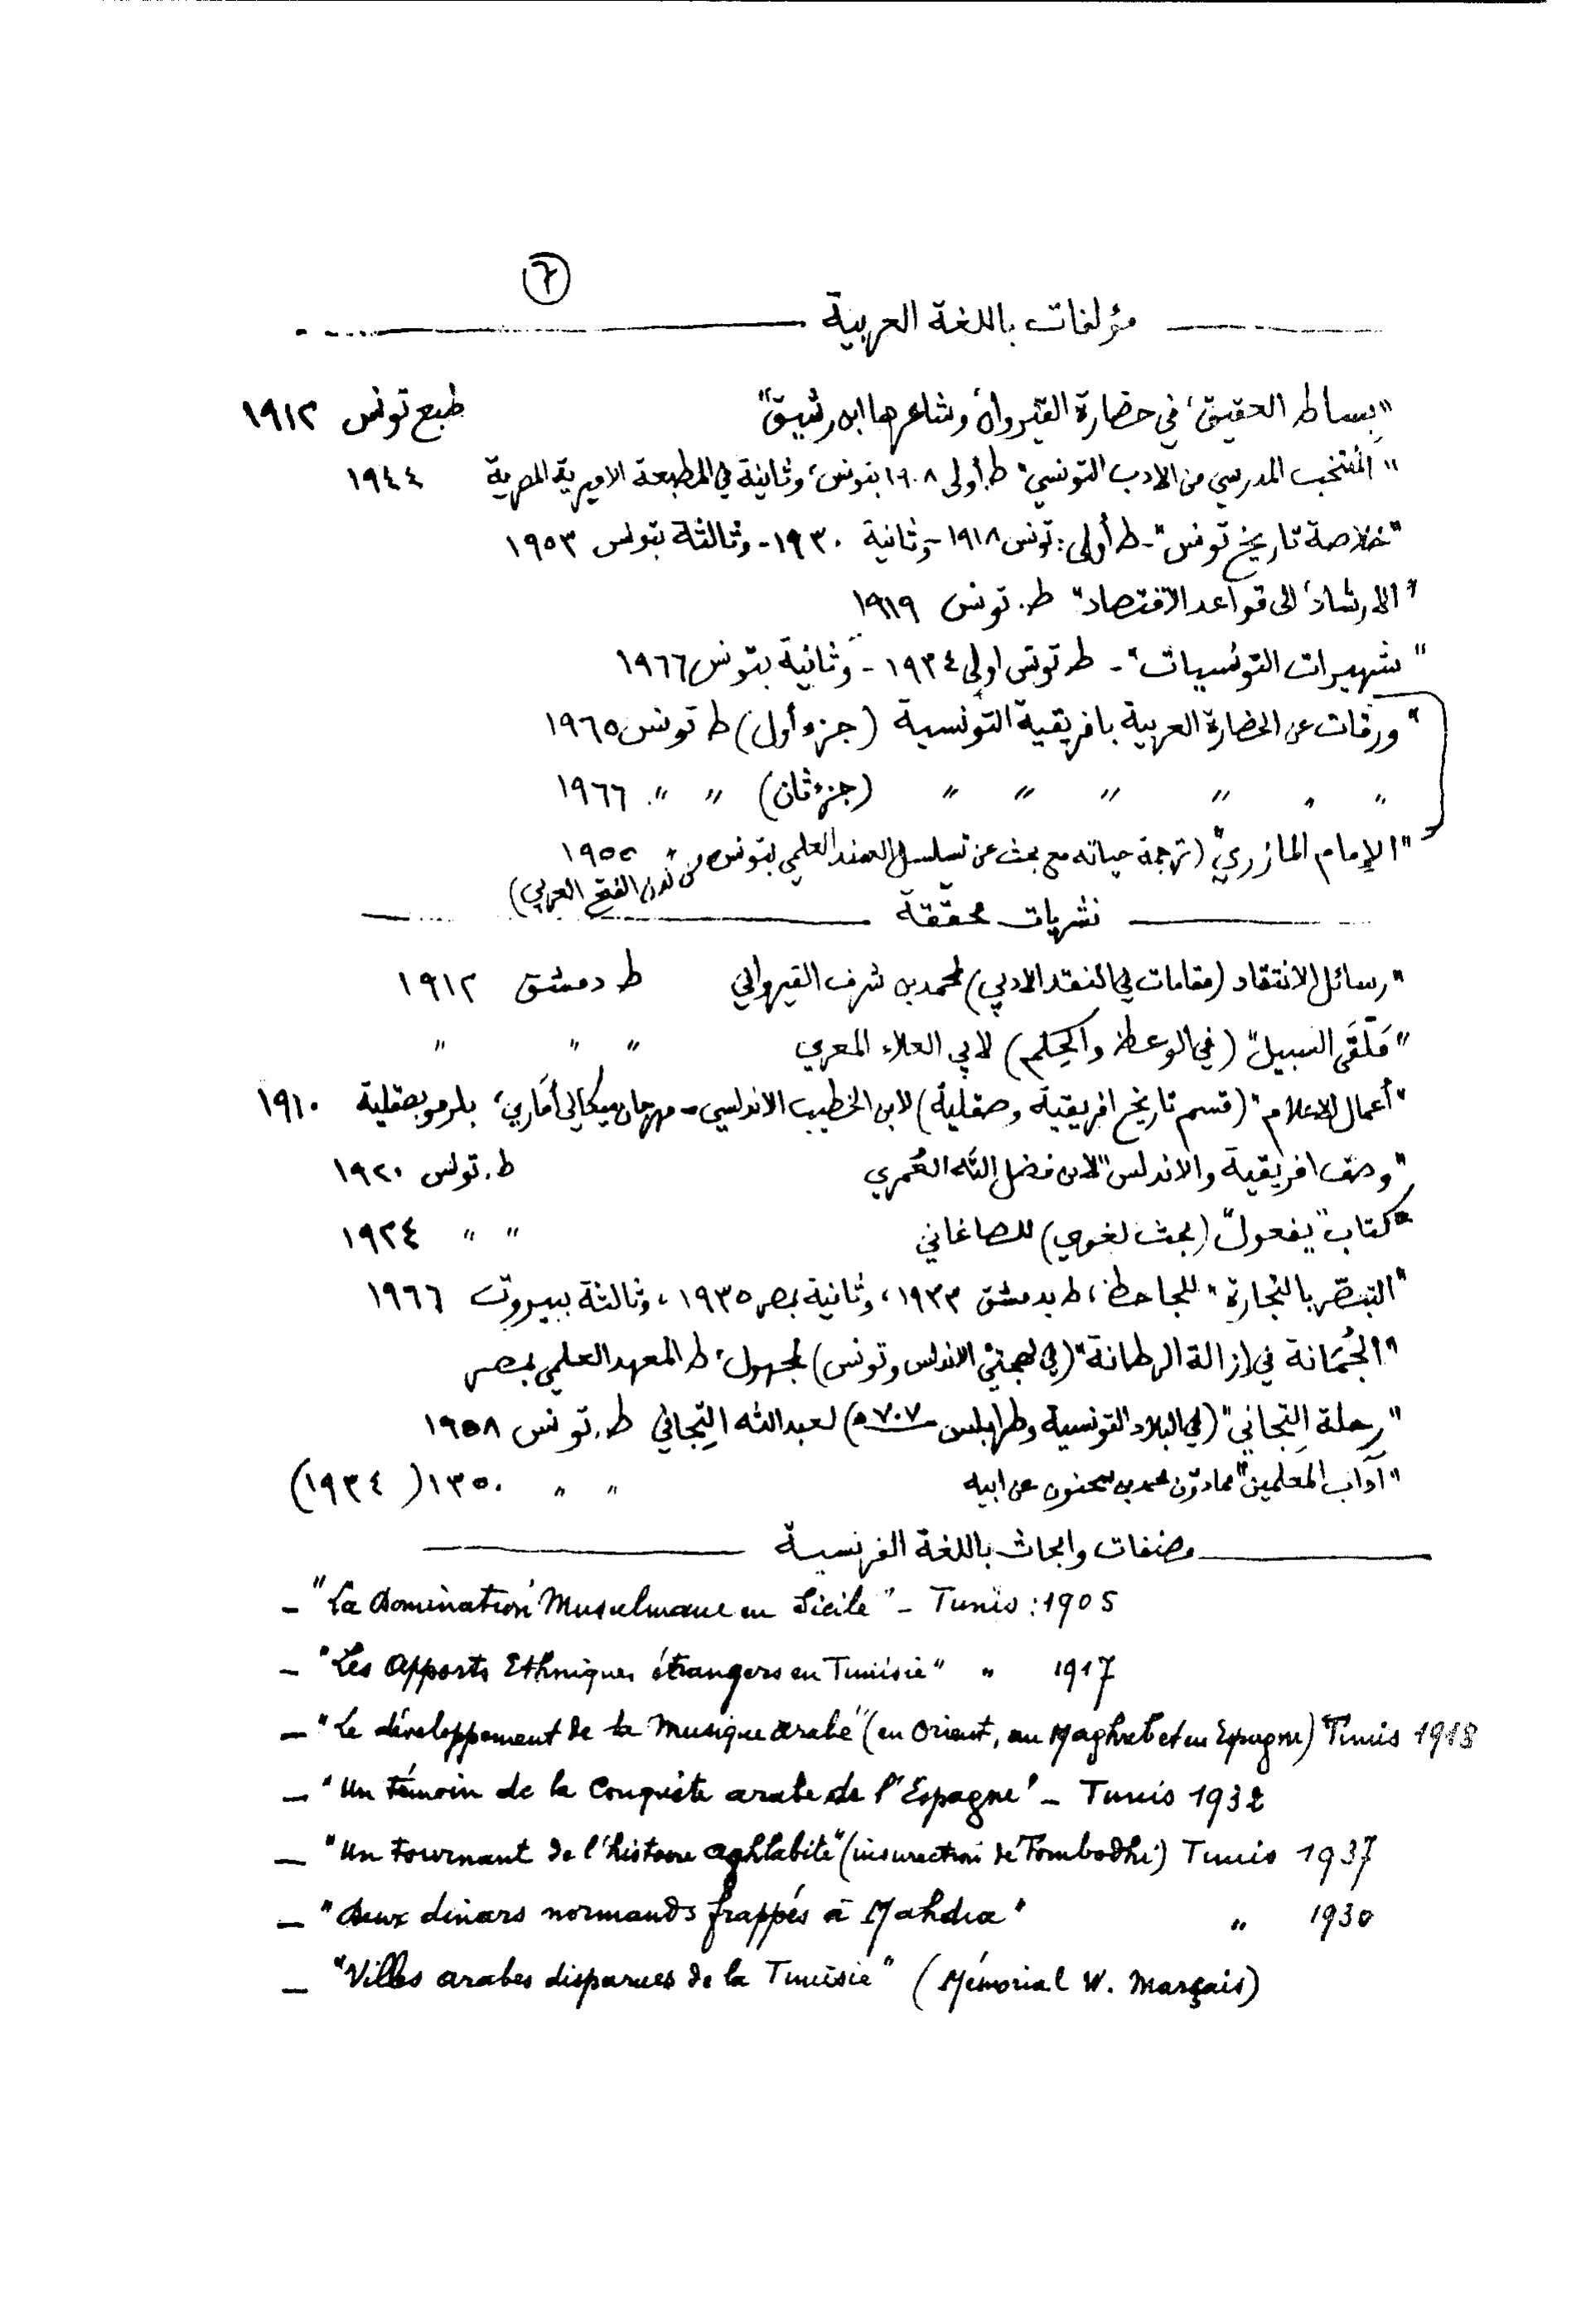 ٦
مؤلفات باللغة العربية
"بساط العقيق، في حضارة القيروان وشاعرها ابن رشيق" طبع تونس ١٩١٢
"المنتخب المدرسي من الادب التونسي" ط. أولى ١٩٠٨ بتونس، وثانية في المطبعة الاميرية المصرية ١٩٤٤
"خلاصة تاريخ تونس" - ط أولى: تونس ١٩١٨ - وثانية ١٩٣٠ - وثالثة بتونس ١٩٥٣
"الارشاد، الى قواعد الاقتصاد" ط. تونس ١٩١٩
"شهيرات التونسيات" - ط. تونس اولى ١٩٣٤ - وثانية بتونس ١٩٦٦
"ورقات عن الحضارة العربية بافريقية التونسية (جزء أول) ط تونس ١٩٦٥
" " " " " " (جزء ثان) " " ١٩٦٦
"الإمام المازري" (ترجمة حياته مع بحث عن تسلسل السند العلمي بتونس من لدن الفتح العربي) " ١٩٥٥
نشريات محقّقة
"رسائل الانتقاد (مقامات في النقد الادبي) لمحمد بن شرف القيرواني ط دمشق ١٩١٢
"مَلْقَى السبيل" (في الوعظ والحِكم) لابي العلاء المعري " " "
"أعمال الاعلام" (قسم تاريخ افريقية وصقلية) لابن الخطيب الاندلسي - مهرجان ميكالي أماري، بلرمو بصقلية ١٩١٠
"وصف افريقية والاندلس" لابن فضل الله العُمري ط. تونس ١٩٢٠
"كتاب "يفعول" (بحث لغوي) للصاغاني " " ١٩٢٤
"التبصّر بالتجارة" للجاحظ، ط بدمشق ١٩٣٣، وثانية بمصر ١٩٣٥، وثالثة ببيروت ١٩٦٦
"الجُمَانة في ازالة الرطانة" (في لهجتيْ الاندلس وتونس) لمجهول، ط المعهد العلمي بمصر
"رحلة التِجاني" (في البلاد التونسية وطرابلس ٧٠٧ هـ) لعبد الله التِجاني ط. تونس ١٩٥٨
"آداب المعلمين" مما دوّن محمد بن سحنون عن ابيه " " ١٣٥٠ (١٩٣٤)
مصنفات وابحاث باللغة الفرنسية
- "La Domination Musulmane en Sicile" - Tunis : 1905
- "Les Apports Ethniques étrangers en Tunisie" " 1917
- "Le développement de la Musique arabe" (en Orient, au Maghreb et en Espagne) Tunis 1918
- "Un Témoin de la Conquête arabe de l'Espagne" - Tunis 1932
- "Un tournant de l'histoire aghlabite" (insurection de Tombodhi) Tunis 1937
- "Deux dinars normands frappés à Mahdia" " 1930
- "Villes arabes disparues de la Tunisie" (Mémorial W. Marçais)